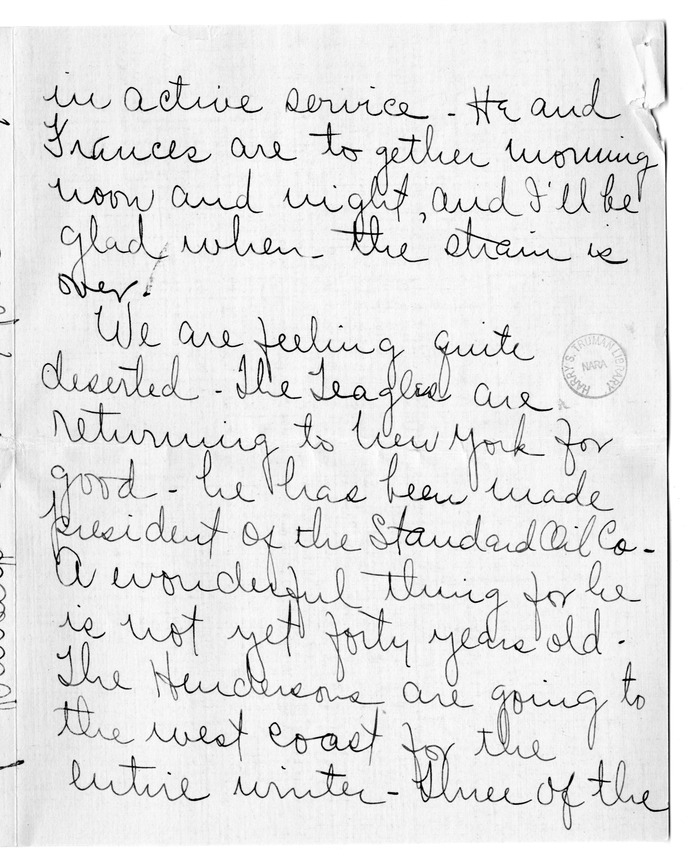 in active service - He and
Frances are to gether morning
noon and night, and I'll be
glad when the strain is
over!
We are feeling quite
deserted - The Teagles are
returning to New York for
good - he has been made
president of the Standard Oil Co -
A wonderful thing for he
is not yet forty years old.
The Hendersons are going to
the west coast for the
entire winter - Three of the
HARRY S. TRUMAN LIBRARY
NARA